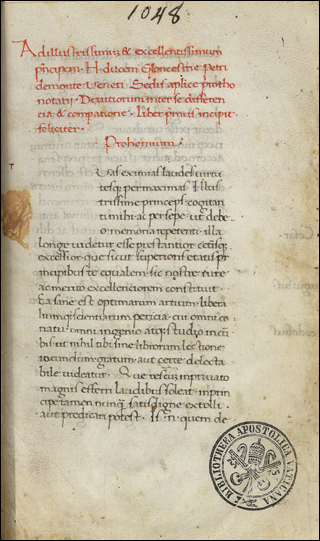 1048
Ad illustrissimum & excellentissimum
principem · H · ducem Gloncestrie petri
de monte Veneti Sedis aplice protho
notarii · De uirtutum inter se differen
cia & compatione · Liber primus incipit
feliciter ·
Prohemium ·
Vas eximias laudes uirtu
tesq; per maximas Illus
trissime princeps cogitan
ti mihi ac persepe ut debe
o memoria repetenti illa
longe uidetur esse prestantior ceterisq;
excelsior que sicut superioris etatis pr
incipibus te equalem sic nostre iure
ac merito excellenciorem constituit ·
Ea sane est optimarum artium libera
liumq; scientiarum peritia cui omni co
natu omni ingenio atq; studio incu
bis ut nihil tibi sine librorum lectione
iocundum gratum aut certe delecta
bile uideatur · Que res cum in priuato
magnis efferri laudibus soleat in prin
cipe tamen nunq satis digne extolli
aut predicari potest · Is · n · quem de
BIBLIOTHECA APOSTOLICA VATICANA